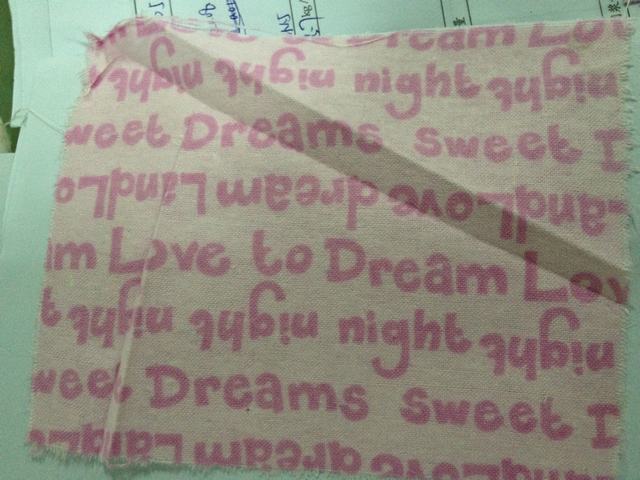 Love to Dream Lo
night night night night
weet Dreams sweet D
Love dream Land Lo
am Love to Dream Lov
t night night night night
weet Dreams sweet D
Love dream Land Lo